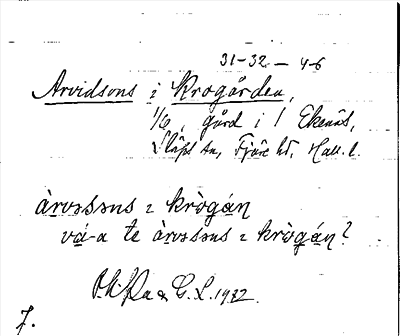 31-32 – 4-6
Arvidsons i Krogården,
1/6, gård i 1 Ekenäs,
Släps sn, Fjäre hd, Hall. l.
àrvəsəns ɪ krògán
vá-a te àrvəsəns ɪ krògán?
& G. L. 1932.
7.